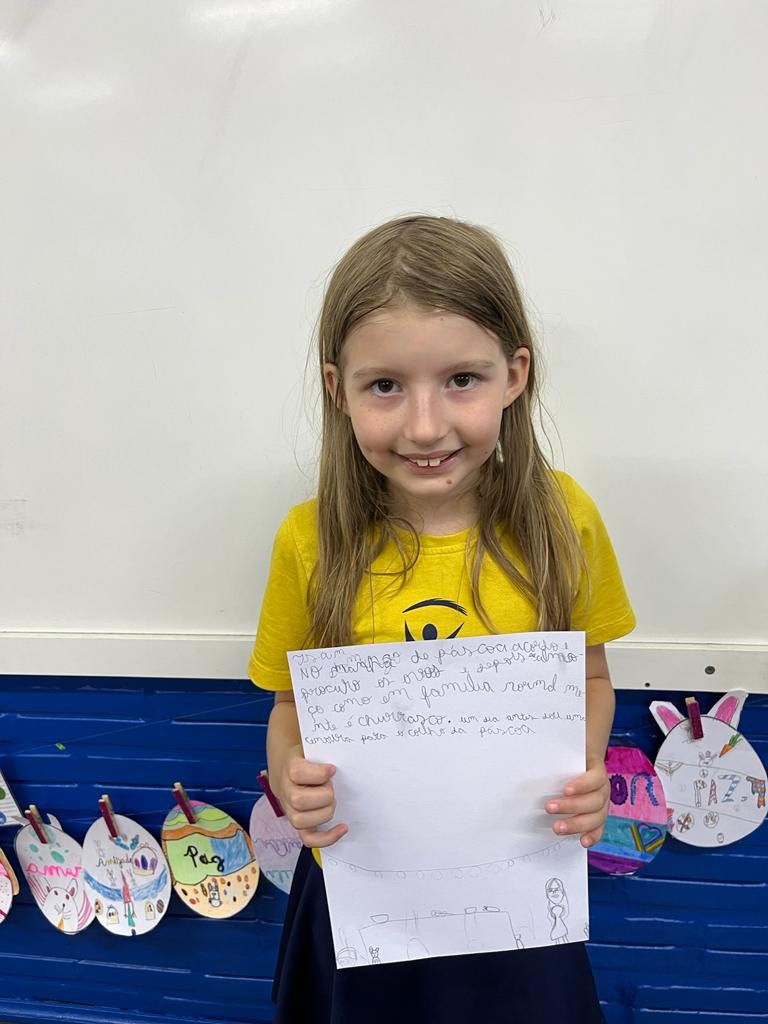 NO manhã de páscoa acordo e
procuro os ovos e depois almo-
ço como em família normal me-
nte é churrasco. um dia antes dou uma
cenoura para o coelho da páscoa
amor
Amizade
Paz
OR
PAZ